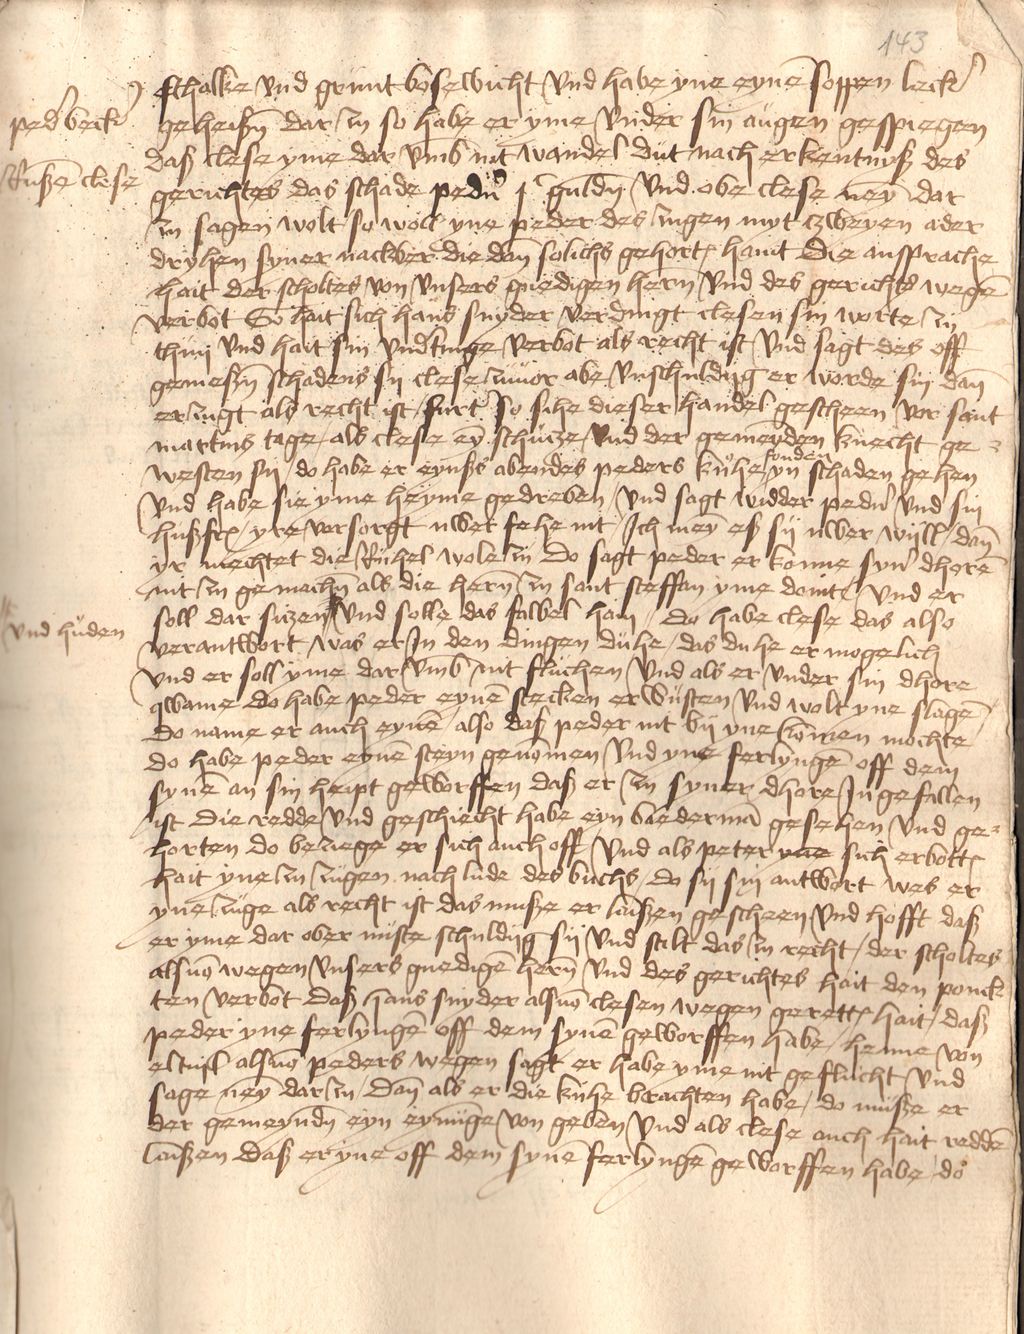 143
schalke vnd grunt bosewicht vnd habe yne eyne soppen leck'
ped' beck'
geheissen dar zu so habe er yme vnder sin augen gespiegen
daß clese yme dar vmb nit wandel dut nach erkentnyß des
Rußen clese
gerichtes das schade pedn' j guldn vnd obe clese neyn dar
zu sagen wolt so woll yne peder des zugen myt czweyen ader
dryhen syner nackber die dan solichs gehort hant die ansprache
hait der scholtes von vnsers gnedigen hern vnd des gerichts wegen
verbot So hait sich hans snyder verdingt clesen sin worte zu
thun vnd hait sin vnd'tinge verbot als recht ist vnd sagt des off
gemeßn schadens sij clese zuuor abe vnschuldijg er worde sin dan
erzugt als recht ist furt so sihe dieser handel gescheen vor sant
martins tage als clese eyn schutze vnd der gemeynden knecht ge=
westen sij do habe er eynßs abendes peders kuhe fonden yn schaden gehen
vnd habe sie yme heyme gedreben vnd sagt widder pedn' vnd sin
hußfr. yre versorgt uwer fehe nit Ich meyn eß sij uwer wyll dan
yr mechtet die kuhel wole zu do sagt peder er konne syn dhore
nit zu gemachn als die hern zu sant steffan yme doint vnd er
soll dar sitzen vnd solle das falbel han / do habe clese das also
vnd huden
verantwort was er In den dingen duhe / das duhe er mogelich
vnd er soll yme dar vmb nit fluchen vnd als er vnder sin dhore
qwame do habe peder eynen stecken erwusten vnd wolt yne slagen
do name er auch eynen also daß peder nit bij yne komen mochte
do habe peder eynen steyn genomen vnd yne ferlyngen off dem
synen an sin heipt geworffen daß er zu syner dhore In gefallen
ist die redde vnd geschiecht habe eyn biederman gesehen vnd ge=
horten do beziege er sich auch off vnd als peter yne sich erbott
hait yne zu zugen nach lude des buchs / do sij sin antwort wes er
yne zuge als recht ist das muße er laißen gescheen vnd hofft daß
er yme dar ober nuste schuldijg sij vnd stilt das zu recht / der scholtes
alsuo wegen vnsers gnedigen hern vnd des gerichtes hait den ponck
ten verbot daß hans snyder alsuo clesen wegen gerett hait / daß
peder yne ferlyngen off dem synen geworffen habe / henne von
eltuil alsuo peders wegen sagt er habe yme nit geflucht vnd
sage neyn dar zu / dan als er die kuhe brachten habe / do muße er
der gemeyndn eyn eynunge von geben vnd als clese auch hait redden
laißen daß er yne off dem synen ferlyngen geworffen habe do